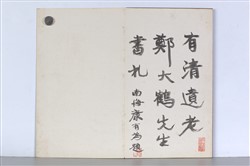 有清遺老
鄭大鶴先生
書札
南海康有為題